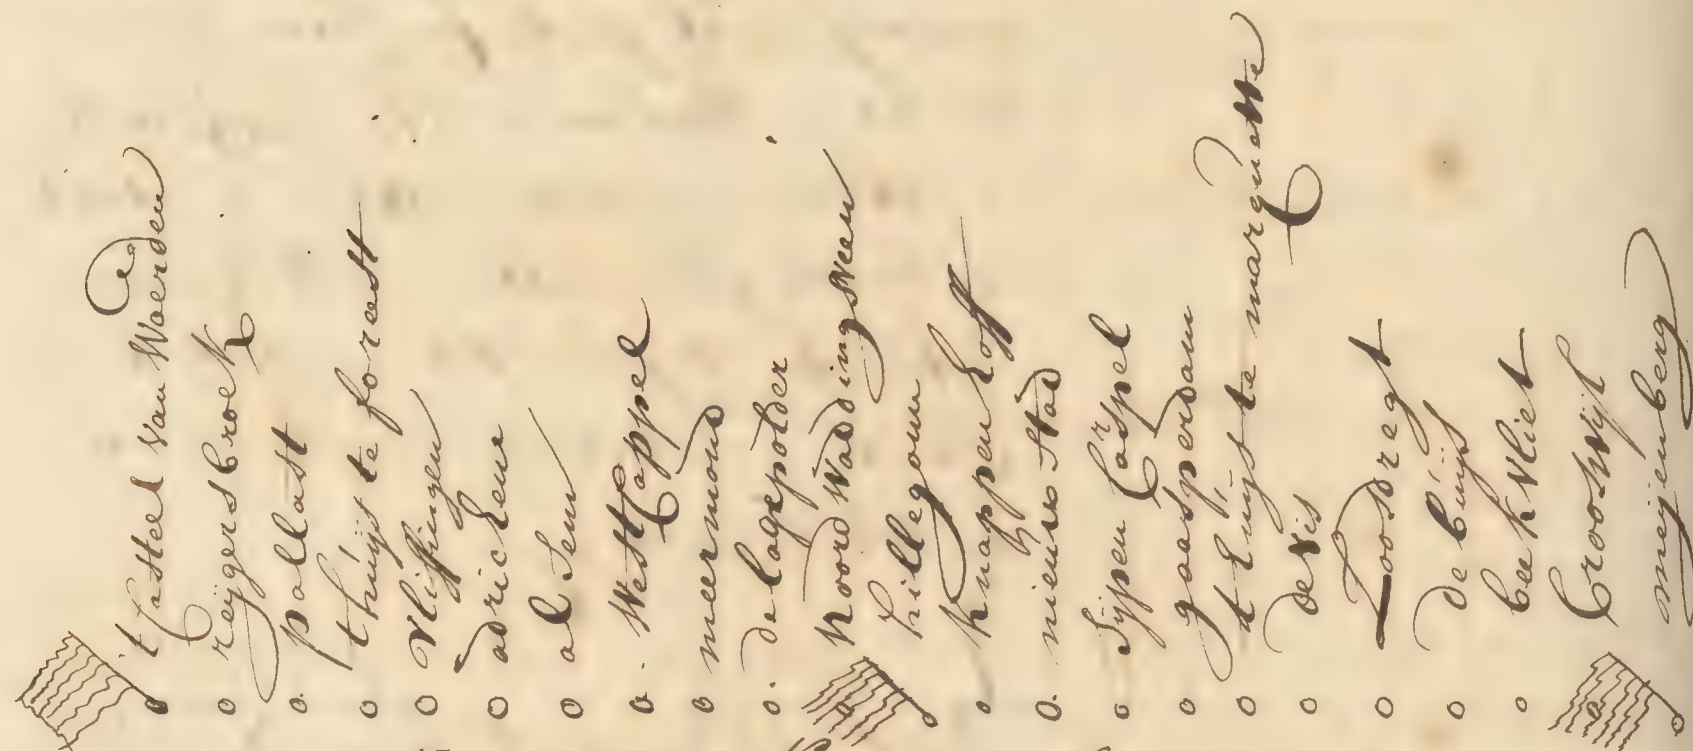 't Casteel Van Woerden
reijgersbroek
pallast
thuijs te foreest
Vlissingen
adrichem
alsem
WestCappel
meermond
de lagepolder
Noord Waddingsveen
hillegom
Knappenhoff
nieuwstad
Sijpen Carspel
gaasperdam
t huijs te marquette
de Vis
Loosdregt
de buijs
beekvliet
Crooswijk
meijenberg